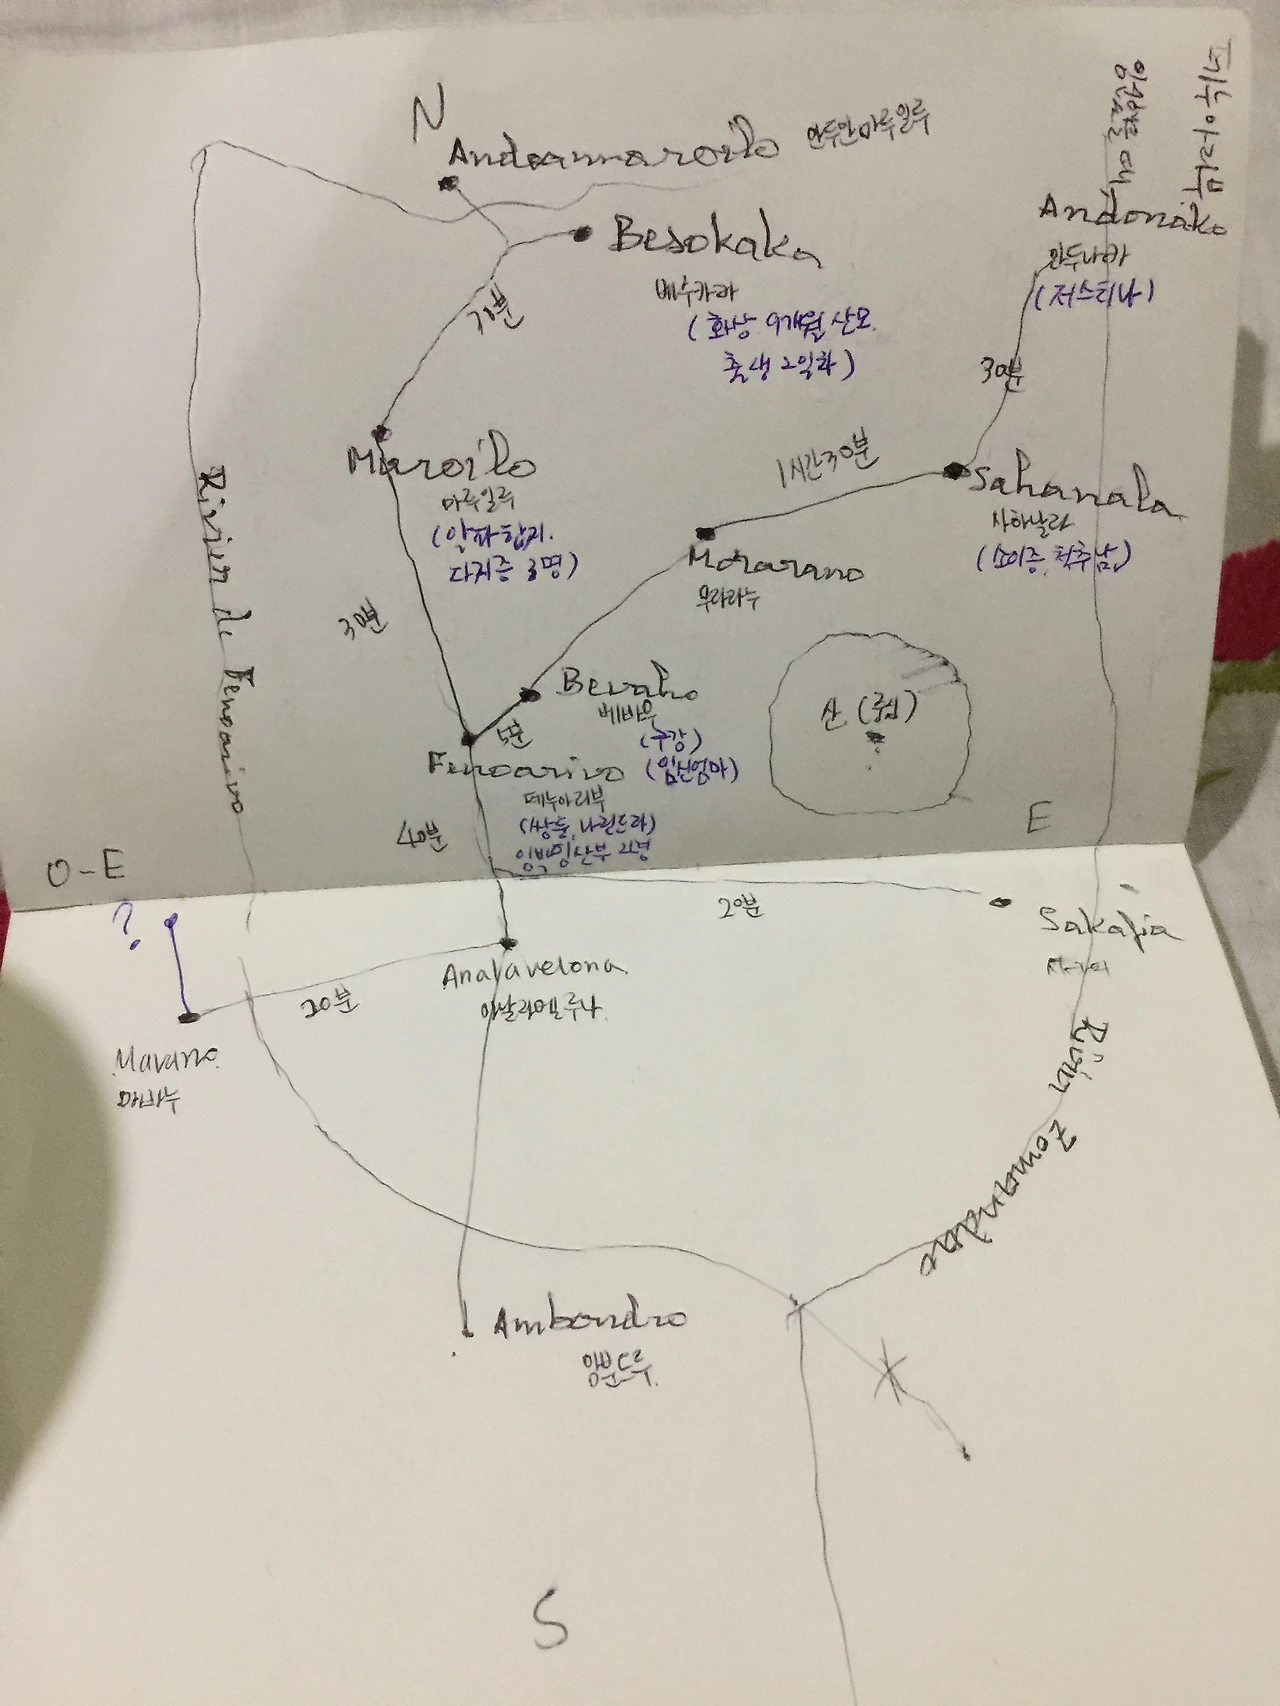 N
Andoanmaroilo 안두안마루일루
페누아리부
Besokaka
베수카카
(화상 9개월 산모.
출생 2일화)
Andonako
안두나카
(저스티나)
30분
Maroilo
마루일루
(알파합지.
다지증 3명)
1시간30분
Sahanala
사하날라
(소이증, 척추남)
Morarano
무라라누
Rivier de Fenoarivo
30분
Bevaho
베바우
(구강)
(임신엄마)
5분
산(륍)
Fenoarivo
페누아리부
(쌍둥, 나린드라)
40분
E
O-E
?
20분
Sakafia
Analavelona.
아날라벨루나.
20분
Mavano.
마바누
Rivier Zomandao
Ambondro
암분드루.
S